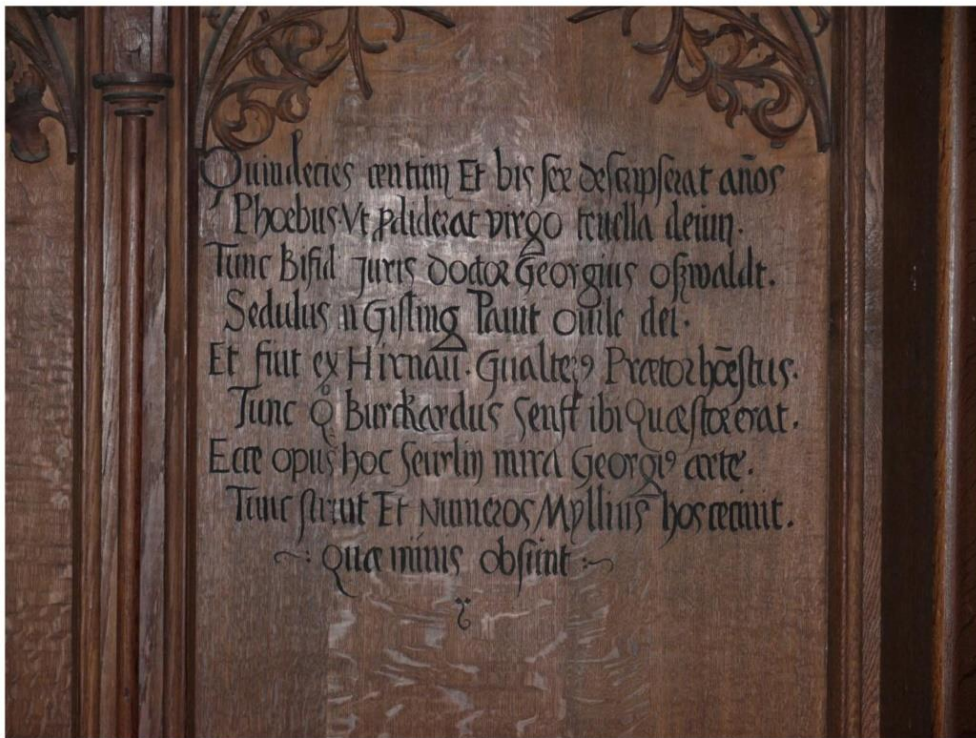 Quindecies centum Et bis sex descripserat años
Phœbus. Vt ꝑdiderat virgo tenella deum.
Tunc Bifid juris doctor Georgius oßwaldt.
Sedulus n Gisling Pauit ouile dei.
Et fiut ex Hirnaū. Gualterꝯ Prætor hōestus.
Tunc Burckardus Senft ibi Quæstor erat.
Ecce opus hoc Seurlin mira Georgiꝯ arte.
Tunc struit Et Numeros Myllius hos cecinit.
~: Quæ minus obsunt :~